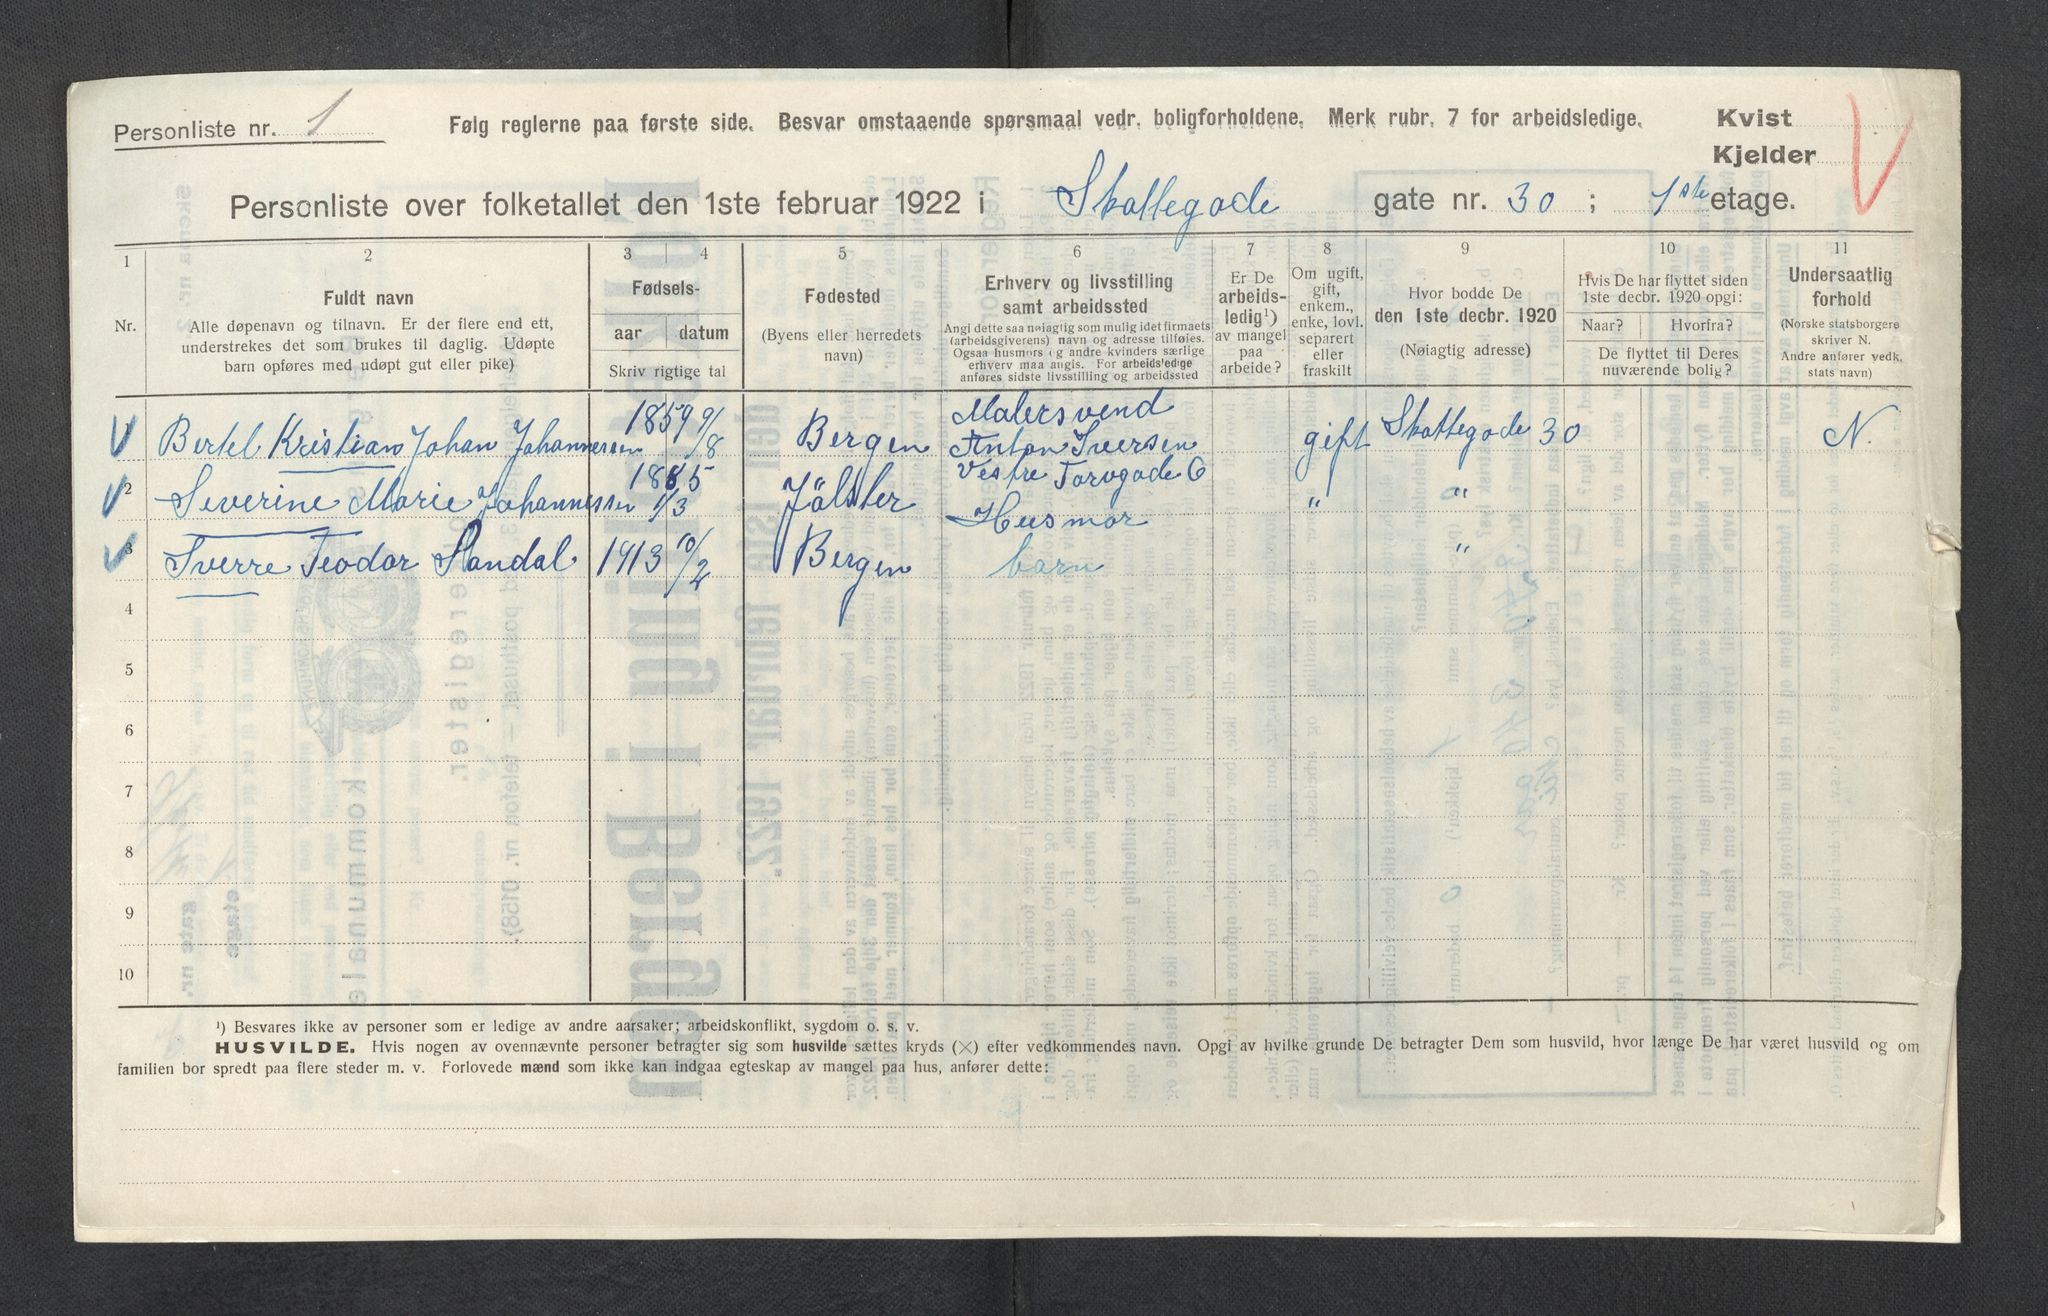 Personliste nr. 1
Følg reglerne paa første side. Besvar omstaaende spørsmaal vedr. boligforholdene. Merk rubr. 7 for arbeidsledige.
Kvist
Kjelder
Personliste over folketallet den 1ste februar 1922 i Skottegade gate nr. 30 ; 1ste etage.
1 2 3 4 5 6 7 8 9 10 11
Nr.
Fuldt navn
Alle døpenavn og tilnavn. Er der flere end ett,
understrekes det som brukes til daglig. Udøpte
barn opføres med udøpt gut eller pike)
Fødsels-
aar datum
Skriv rigtige tal
Fødested
(Byens eller herredets
navn)
Erhverv og livsstilling
samt arbeidssted
Angi dette saa nøiagtig som mulig idet firmaets
(arbeidsgiverens) navn og adresse tilføies.
Ogsaa husmors og andre kvinders særlige
erhverv maa angis. For arbeidsledige
anføres sidste livsstilling og arbeidssted
Er De
arbeids-
ledig¹)
av mangel
paa
arbeide?
Om ugift,
gift,
enkem.,
enke, lovl.
separert
eller
fraskilt
Hvor bodde De
den 1ste decbr. 1920
(Nøiagtig adresse)
Hvis De har flyttet siden
1ste decbr. 1920 opgi:
Naar? Hvorfra?
De flyttet til Deres
nuværende bolig?
Undersaatlig
forhold
(Norske statsborgere
skriver N.
Andre anfører vedk.
stats navn)
1 Bertel Kristian Johan Johannessen 1859 9/8 Bergen Malersvend
Anton Iversen
Vestre Torvgade 6 gift Skottegade 30 N.
2 Severine Marie Johannessen 1865 1/3 Jölster Husmor " "
3 Sverre Teodor Standal 1913 10/2 Bergen barn "
4
5
6
7
8
9
10
¹) Besvares ikke av personer som er ledige av andre aarsaker; arbeidskonflikt, sygdom o. s. v.
HUSVILDE. Hvis nogen av ovennævnte personer betragter sig som husvilde sættes kryds (×) efter vedkommendes navn. Opgi av hvilke grunde De betragter Dem som husvild, hvor længe De har været husvild og om
familien bor spredt paa flere steder m. v. Forlovede mænd som ikke kan indgaa egteskap av mangel paa hus, anfører dette: